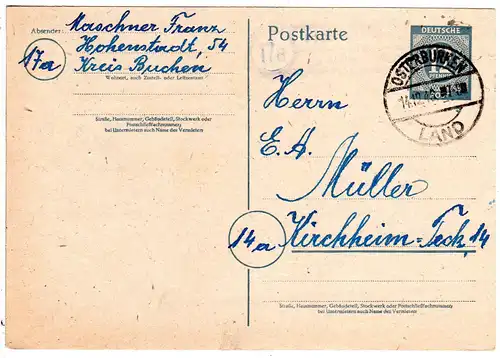 Absender:
Maschner Franz
Hohenstadt, 54
17a
Kreis Buchen
Wohnort, auch Zustell- oder Leitpostamt
Straße, Hausnummer, Gebäudeteil, Stockwerk oder
Postschließfachnummer;
bei Untermietern auch Name des Vermieters
Postkarte
DEUTSCHE
OSTERBURKEN
LAND
Herrn
E. A.
Müller
14a
Kirchheim-Teck, 14
Straße, Hausnummer, Gebäudeteil, Stockwerk oder Postschließfachnummer;
bei Untermietern auch Name des Vermieters